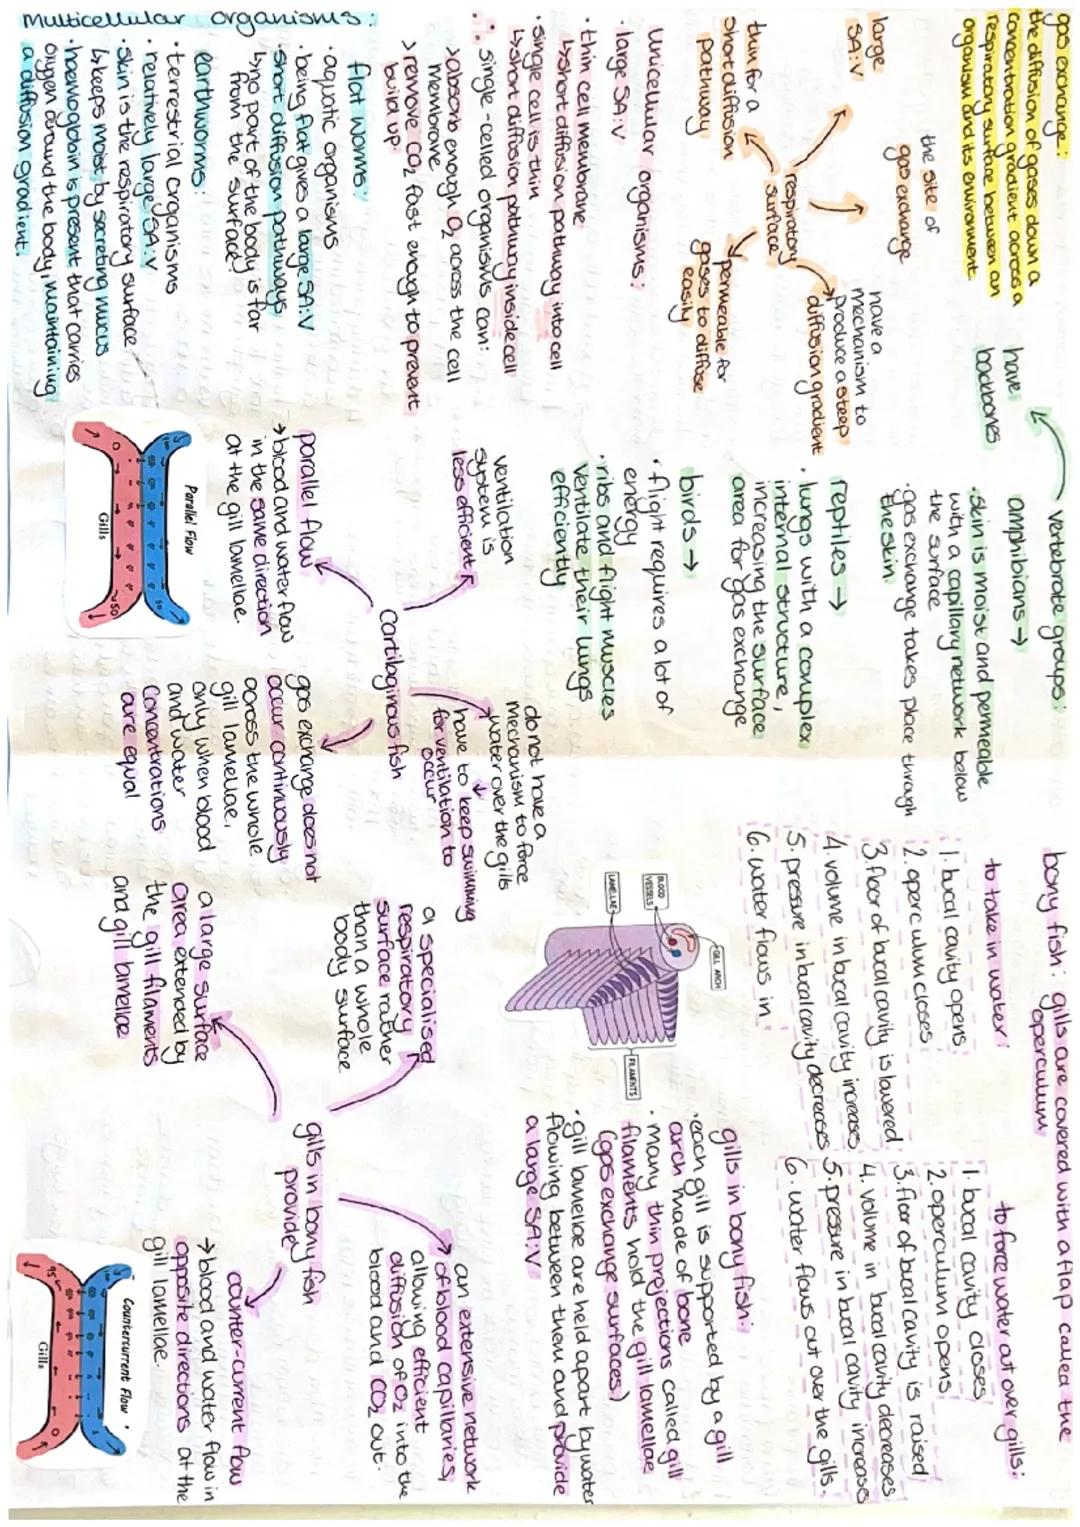 gas exchange:
the diffusion of gases down a
concentration gradient across a
respiratory surface between an
organism and its environment
the site of
gas exchange
large
SA:V
have a
mechanism to
produce a steep
diffusion gradient
respiratory
surface
thin for a
short diffusion
pathway
permeable for
gases to diffuse
easily
unicellular organisms:
· large SA:V
· thin cell membrane
↳ short diffusion pathway into cell
· single cell is thin
↳ short diffusion pathway inside cell
∴ single-celled organisms can:
> absorb enough O₂ across the cell
membrane
> remove CO₂ fast enough to prevent
build up.
Multicellular organisms:
flat worms:
· aquatic organisms
· being flat gives a large SA:V
· short diffusion pathways
↳ no part of the body is far
from the surface
earthworms:
· terrestrial organisms
· relatively large SA:V
· skin is the respiratory surface
↳ keeps moist by secreting mucus
· haemoglobin is present that carries
oxygen around the body, maintaining
a diffusion gradient.
vertebrate groups:
have
backbones
amphibians →
· skin is moist and permeable
with a capillary network below
the surface
· gas exchange takes place through
the skin.
reptiles →
· lungs with a complex
internal structure,
increasing the surface
area for gas exchange
birds →
· flight requires a lot of
energy
· ribs and flight muscles
ventilate their lungs
efficiently
cartilaginous fish
ventilation
system is
less efficient
do not have a
mechanism to force
water over the gills
↓
have to keep swimming
for ventilation to
occur
parallel flow
→ blood and water flow
in the same direction
at the gill lamellae.
Parallel Flow
Gills
gas exchange does not
occur continuously
across the whole
gill lamellae,
only when blood
and water
concentrations
are equal
bony fish: gills are covered with a flap called the
operculum
to take in water:
1. bucal cavity opens
2. operculum closes
3. floor of bucal cavity is lowered
4. volume in bucal cavity increases
5. pressure in bucal cavity decreases
6. water flows in
to force water out over gills:
1. bucal cavity closes
2. operculum opens
3. floor of bucal cavity is raised
4. volume in bucal cavity decreases
5. pressure in bucal cavity increases
6. water flows out over the gills.
GILL ARCH
BLOOD
VESSELS
LAMELLAE
FILAMENTS
gills in bony fish:
· each gill is supported by a gill
arch made of bone
· Many thin projections called gill
filaments hold the gill lamellae
(gas exchange surfaces)
· gill lamellae are held apart by water
flowing between them and provide
a large SA:V
gills in bony fish
provide
a specialised
respiratory
surface rather
than a whole
body surface
a large surface
area extended by
the gill filaments
and gill lamellae
an extensive network
of blood capillaries,
allowing efficient
diffusion of O₂ into the
blood and CO₂ out.
counter-current flow
→ blood and water flow in
opposite directions at the
gill lamellae.
Countercurrent Flow
Gills